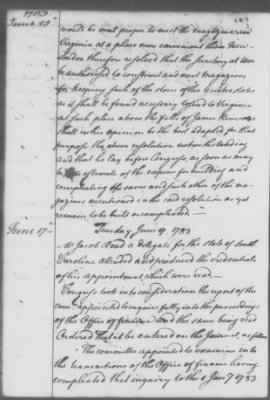 1783
June 13
would be most proper to erect the magazines in
Virginia at a place more convenient than New
London therefore resolved that the secretary at war
be authorised to construct and erect magazines
for keeping such of the stores of the United States
as it shall be found necessary to lodge in Virginia
at such place above the falls of James River as
shall in his opinion be the best adapted for that
purpose the above resolution notwithstanding
and that he lay before Congress, as soon as may
be estimate of the expence for building and
compleating the same and such other of the ma
gazines mentioned in the said resolution as yet
remain to be built or compleated.
June 17
Tuesday June 17. 1783
Mr Jacob Read a delegate for the state of South
Carolina attended and produced the credentials
of his appointment, which were read.
Congress took into consideration the report of the
comee appointed to enquire fully into the proceedings
of the Office of finance and the same being read
Ordered that it be entered on the Journal, as follows
The committee appointed to examine into
the transactions of the Office of finance having
compleated that inquiry to the